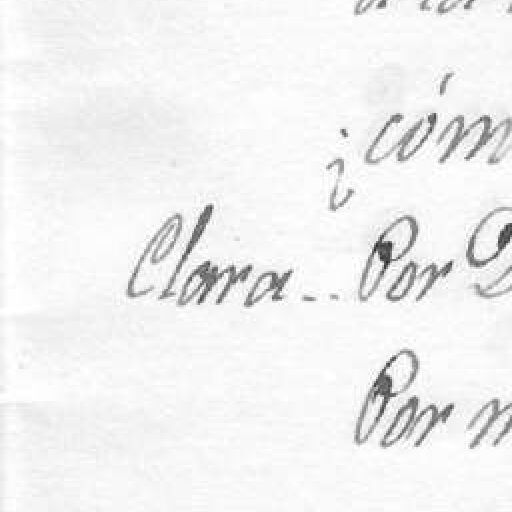 ¿cóm
Clara.. Por D
Por m